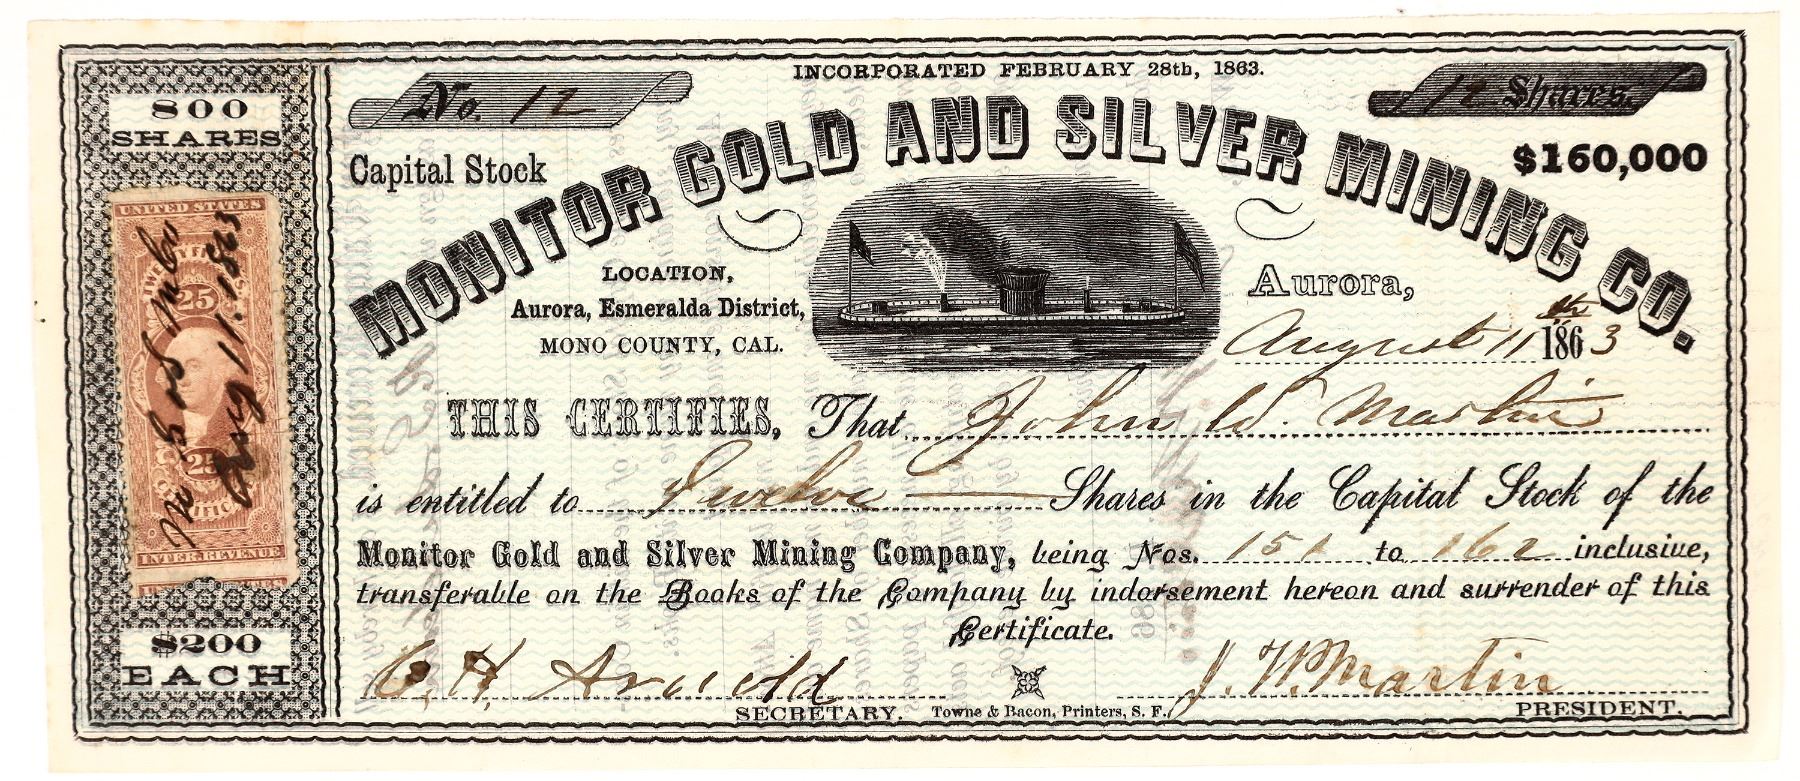 INCORPORATED FEBRUARY 28th, 1863.
No. 12
12 Shares.
800
SHARES
Capital Stock
$160,000
MONITOR GOLD AND SILVER MINING CO.
LOCATION,
Aurora, Esmeralda District,
MONO COUNTY, CAL.
Aurora,
August 11th 1863
UNITED STATES
25
25
INTER. REVENUE
Aug 11. 1863
THIS CERTIFIES, That John W. Martin
is entitled to Twelve Shares in the Capital Stock of the
Monitor Gold and Silver Mining Company, being Nos. 151 to 162 inclusive,
transferable on the Books of the Company by indorsement hereon and surrender of this
Certificate.
$200
EACH
C. H. Arnold
SECRETARY.
Towne & Bacon, Printers, S. F.
J. W. Martin
PRESIDENT.